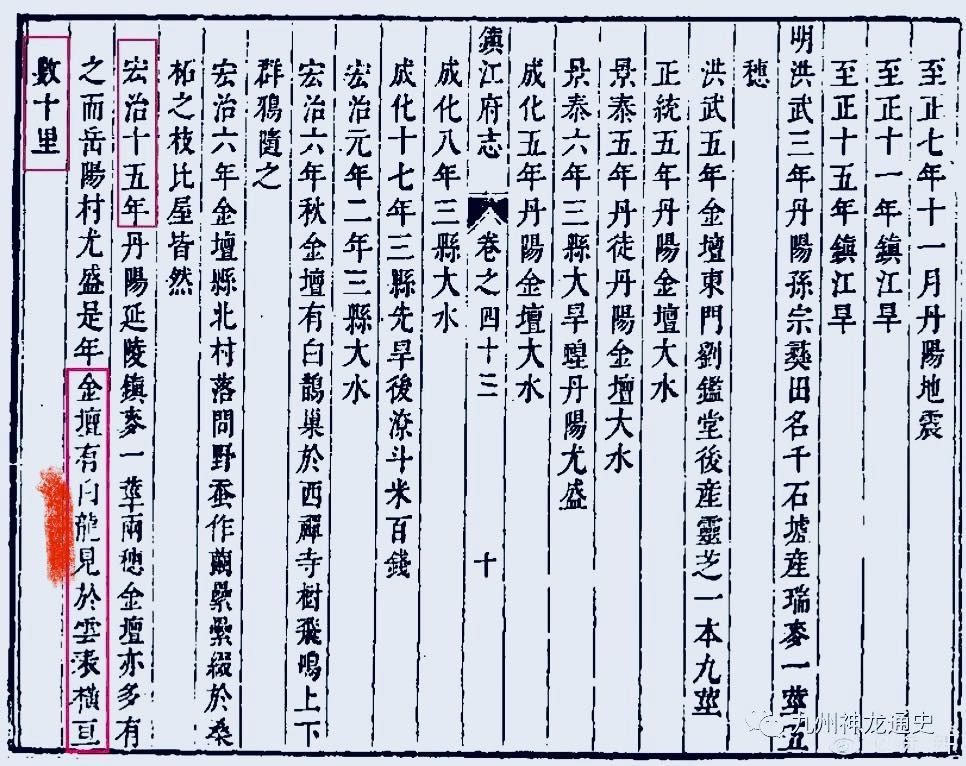 至正七年十一月丹陽地震
至正十一年鎮江旱
至正十五年鎮江旱
明洪武三年丹陽孫宗彝田名千石墟産瑞麥一莖五
穂
洪武五年金壇東門劉鑑堂後産靈芝一本九莖
正統五年丹陽金壇大水
景泰五年丹徒丹陽金壇大水
景泰六年三縣大旱蝗丹陽尤盛
成化五年丹陽金壇大水
鎮江府志 卷之四十三 十
成化八年三縣大水
成化十七年三縣先旱後潦斗米百錢
宏治元年二年三縣大水
宏治六年秋金壇有白鵲巢於西禪寺樹飛鳴上下
群鴉隨之
宏治六年金壇縣北村落間野蚕作繭纍纍綴於桑
柘之枝比屋皆然
宏治十五年丹陽延陵鎮麥一莖兩穂金壇亦多有
之而岳陽村尤盛是年金壇有白龍見於雲表橫亘
數十里
九州神龙通史